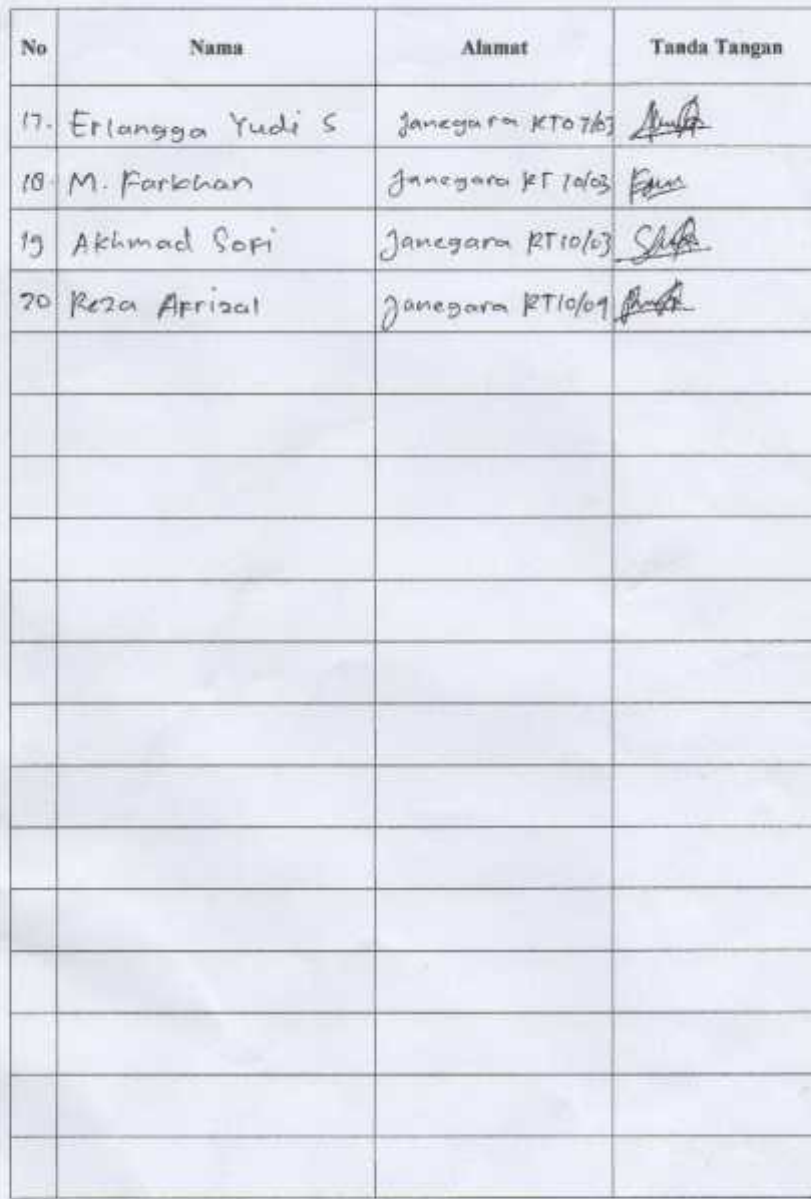 No Nama Alamat Tanda Tangan
17. Erlangga Yudi S Janegara RT07/03
18. M. Farkhan Janegara RT 10/03
19 Akhmad Sofi Janegara RT10/03
20 Reza Afrizal Janegara RT10/09